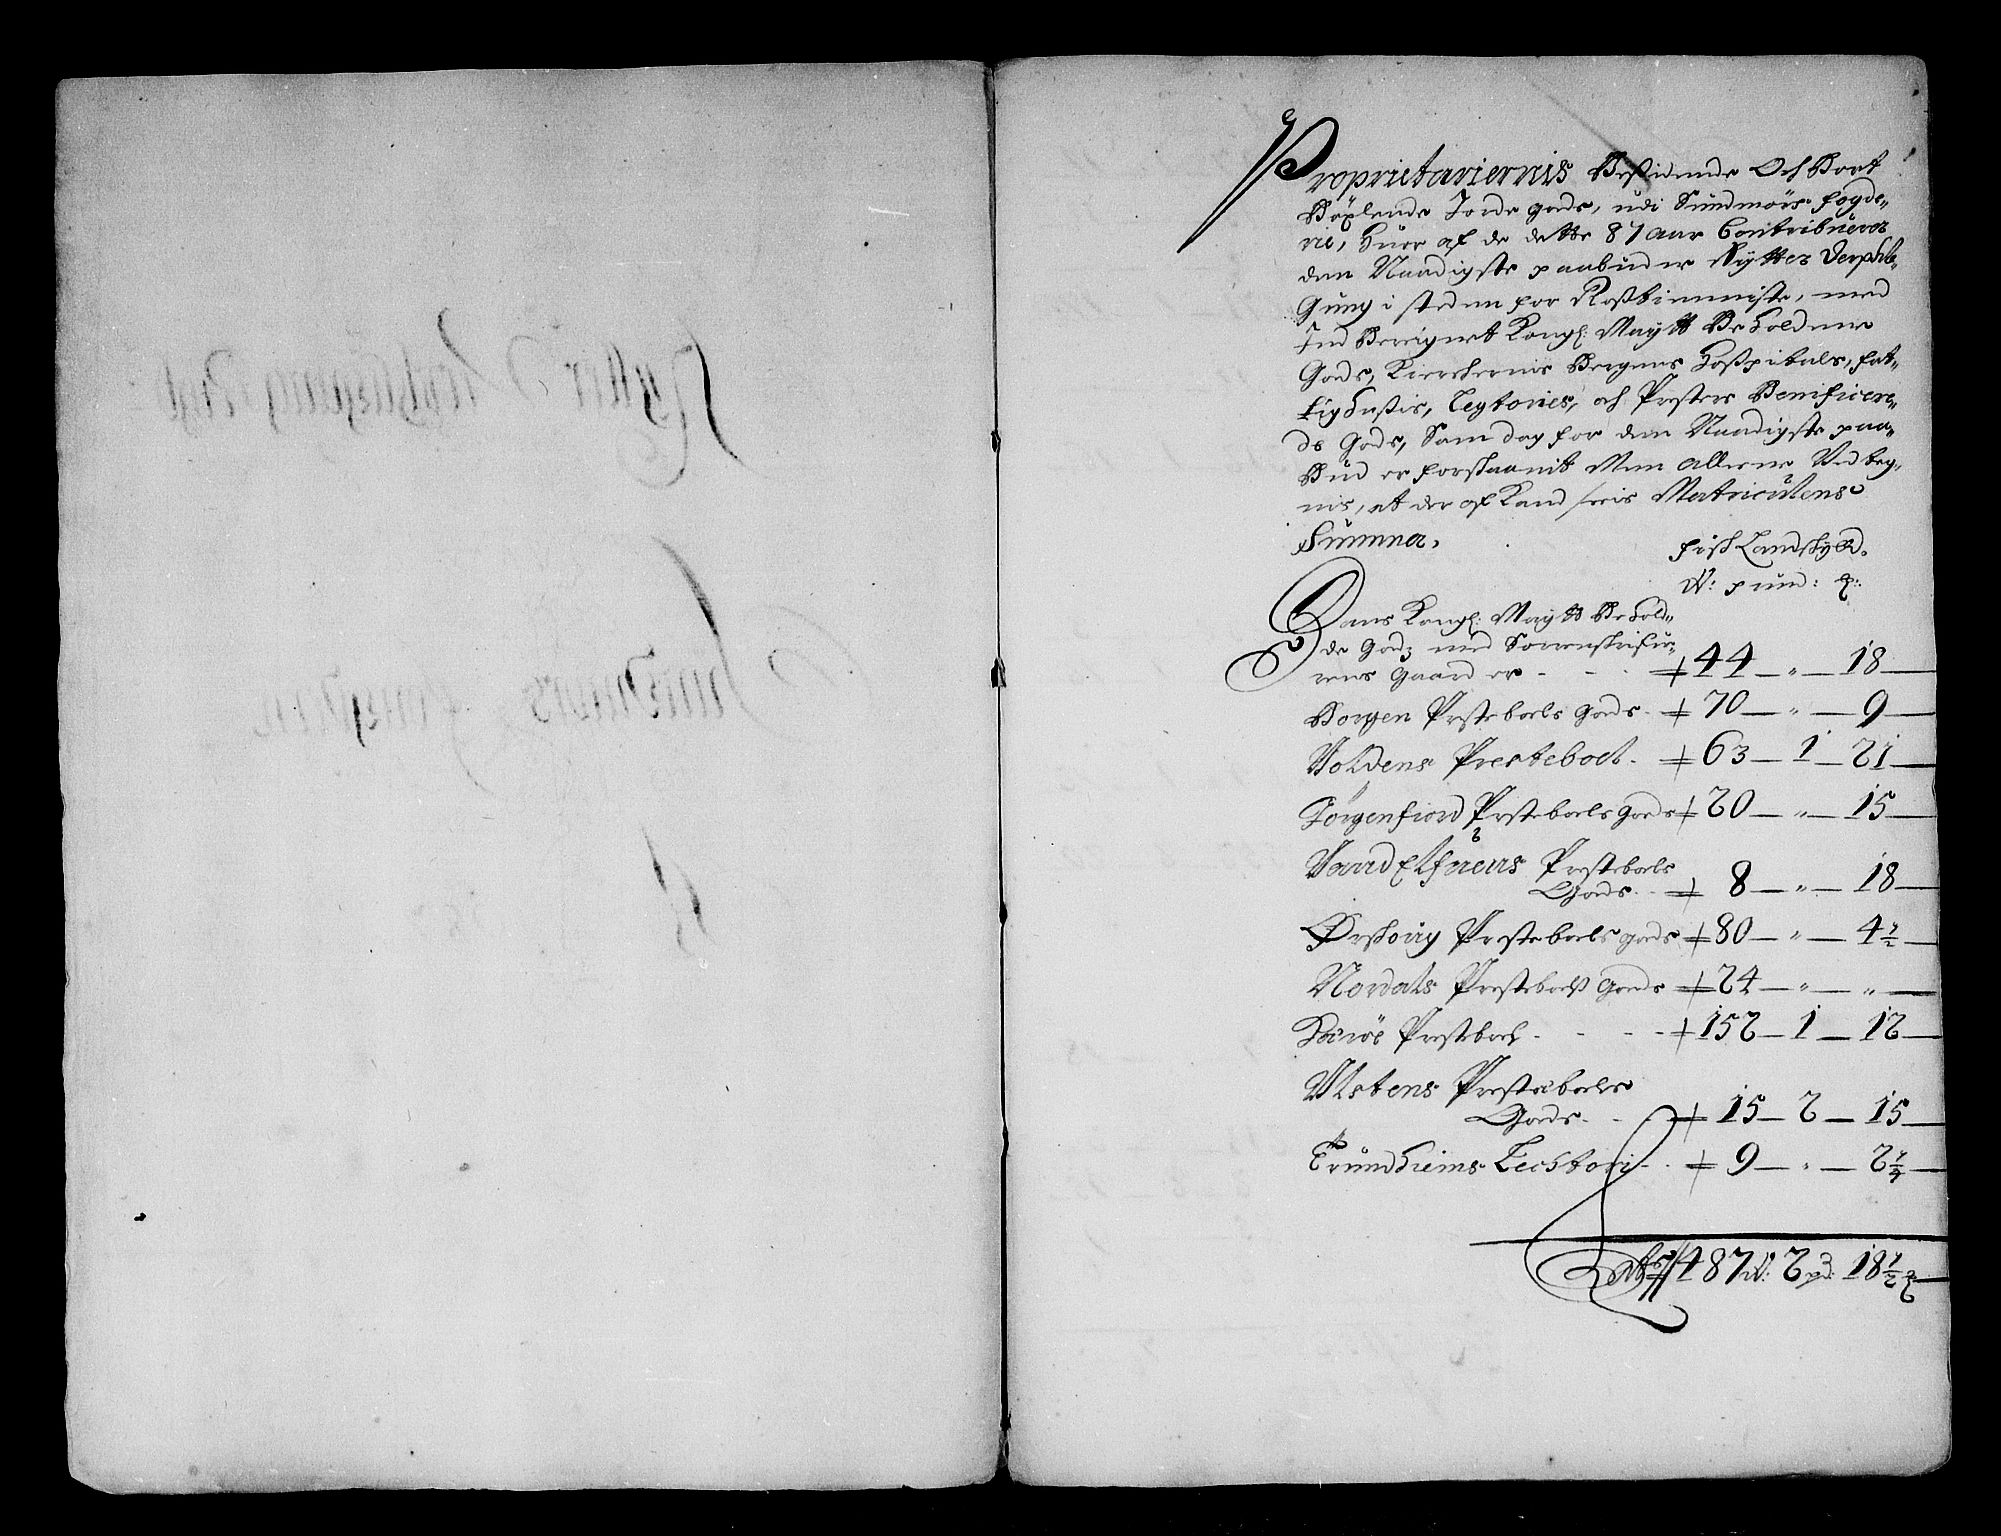 Proprietariernis Besidende Och Bort
Böxlende Jorde gods, udi Sundmörs fogde„
rie, Huor af de dette 87 aar Contribuerer
den Naadigste paabudne Rytter Verpfle„
gung i steden for Rosstienniste, med
Ind Beregnet Kongl: Maytt Beholdene
Gods, Kierchernis Bergens Hospitals, fat„
tighussis, Legtories, och Presters Benificere„
de Gods, Som dog for den Naadigste paa„
Bud er forskaanit Men allene Ved teg„
nis, at der af Kand sees Matriculens
Summa,
fisk Landskyld.
W: pund: ℔:
Hans Kongl: Maytt Behold„
de Godz med Sorrenskrifue„
rens Gaard er - - - 44 — „ — 18 —
Borgen Prestebols Gods - 70 — „ — 9 —
Voldens Presteboel - 63 — 1 — 21 —
Jörgenfiord Prestebols Gods 20 — „ — 15 —
Vand Elfuens Prestebols
Gods - - 8 — „ — 18 —
Ørskoug Prestebols gods 80 — „ — 4½ —
Nordals Prestebols Gods 24 — „ — „ —
Heröe Prestebol - - - - 152 — 1 — 12 —
Ulstens Prestebols
Gods - - - 15 — 2 — 15 —
Trundhiems Lechtori - - 9 — „ — 2¼ —
487 W: 2 pd: 18½ ℔